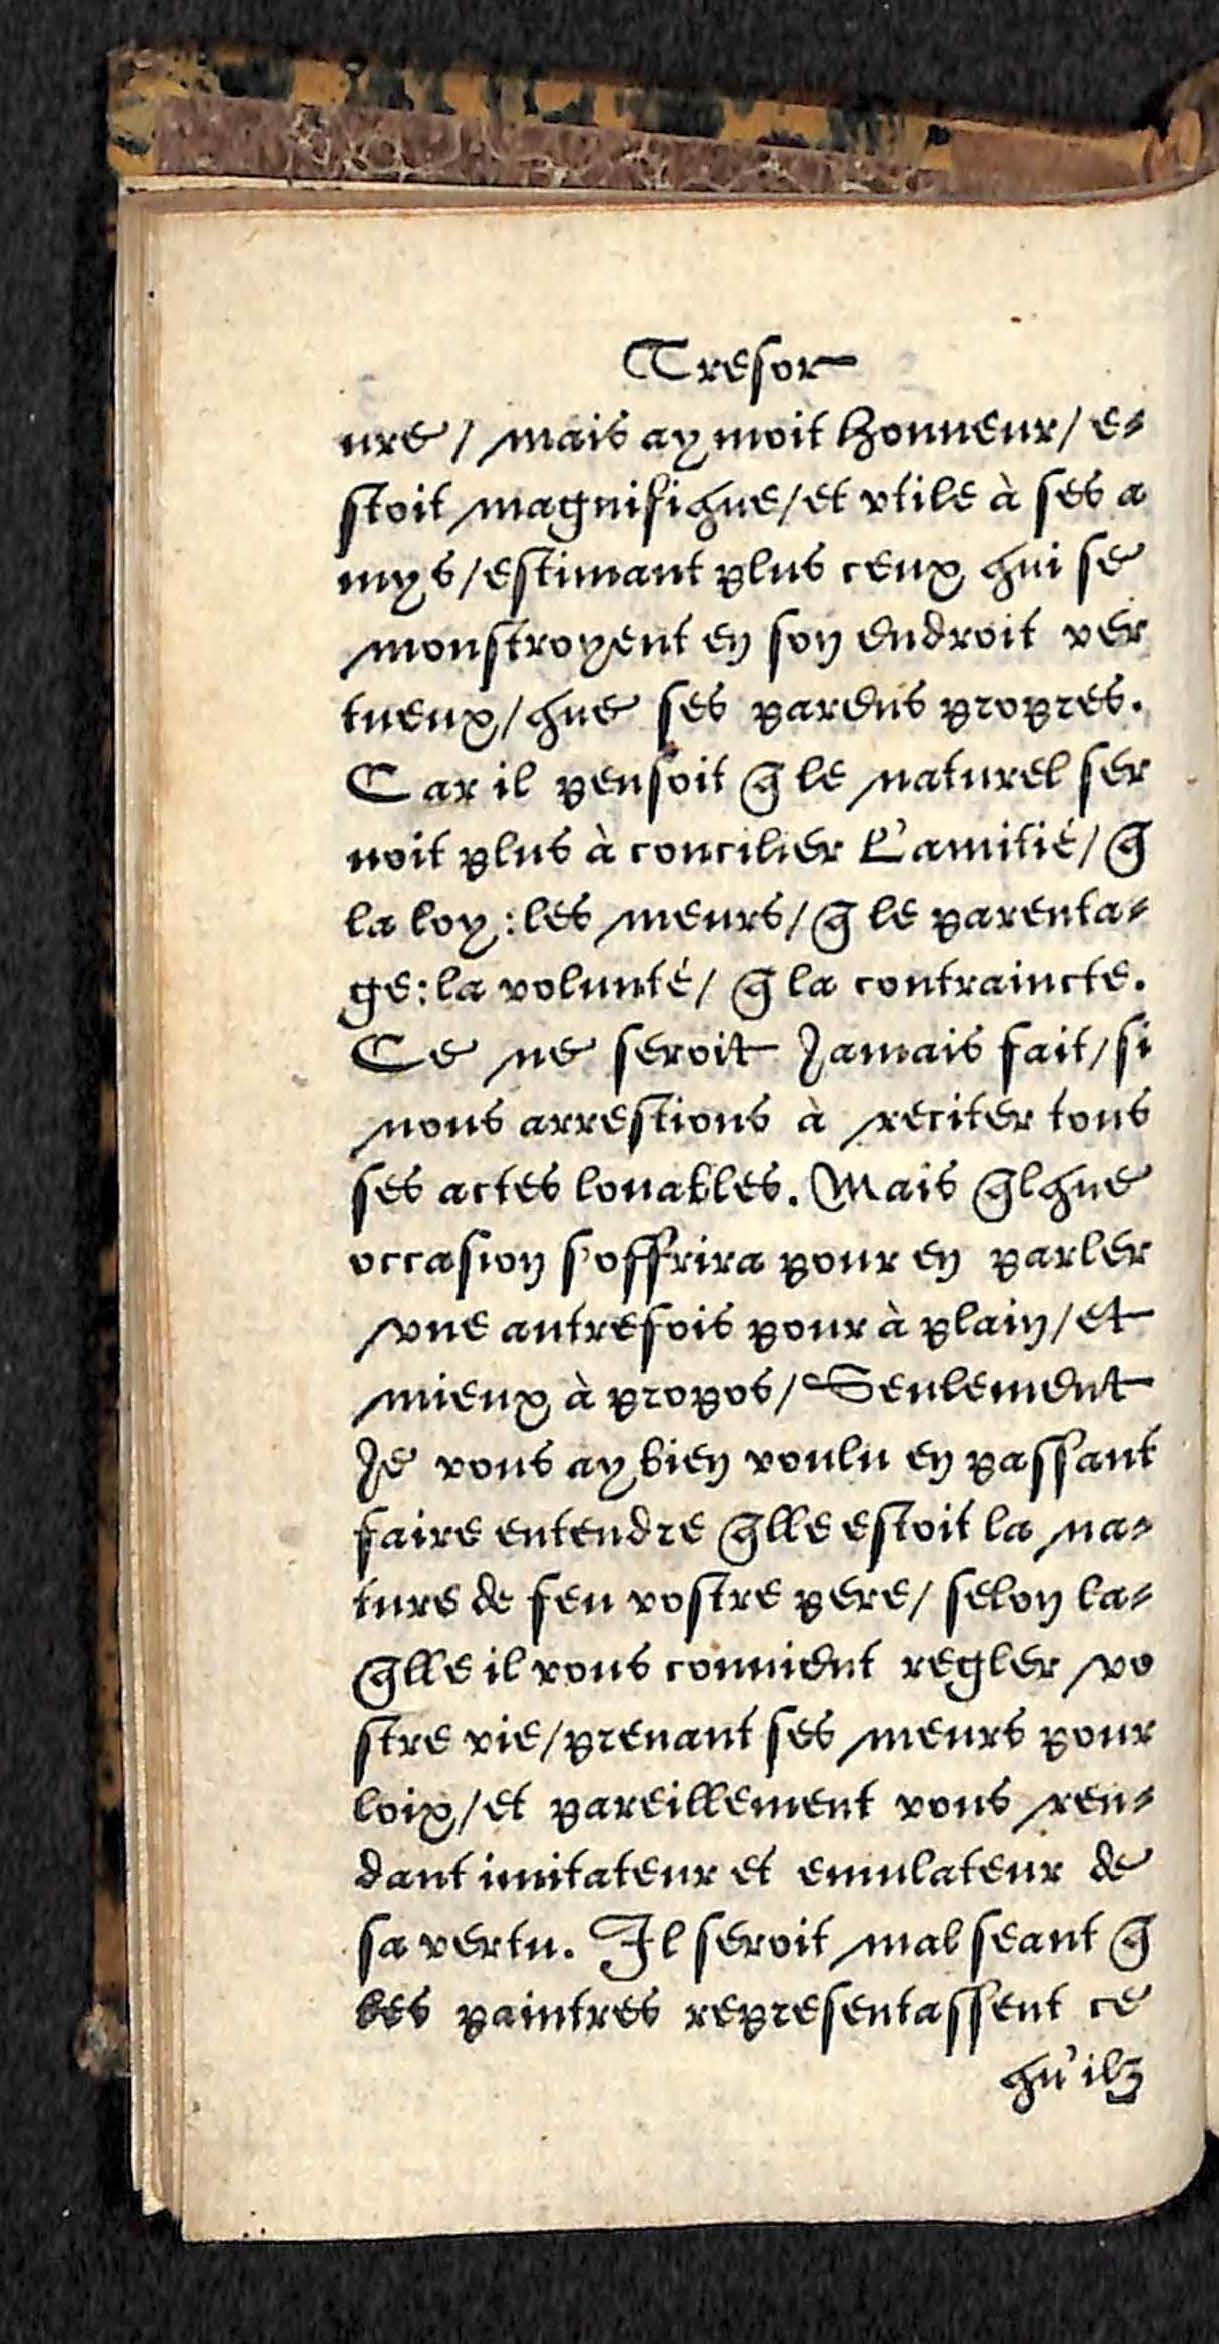 Tresor
ure / mais aymoit honneur / e-
stoit magnifique / et vtile à ses a
mys / estimant plus ceux qui se
monstroyent en son endroit ver
tueux / que ses parens propres.
Car il pensoit q̄ le naturel ser
uoit plus à concilier l'amitié / q̄
la loy : les meurs / q̄ le parenta-
ge : la volunté / q̄ la contraincte.
Ce ne seroit Jamais fait / si
nous arrestions à reciter tous
ses actes louables. Mais q̄lque
occasion s'offrira pour en parler
vne autrefois pour à plain / et
mieux à propos / Seulement
Je vous ay bien voulu en passant
faire entendre q̄lle estoit la na-
ture de feu vostre pere / selon la-
q̄lle il vous conuient regler vo
stre vie / prenant ses meurs pour
loix / et pareillement vous ren-
dant imitateur et emulateur de
sa vertu. Il seroit mal seant q̄
les paintres representassent ce
qu'ilz